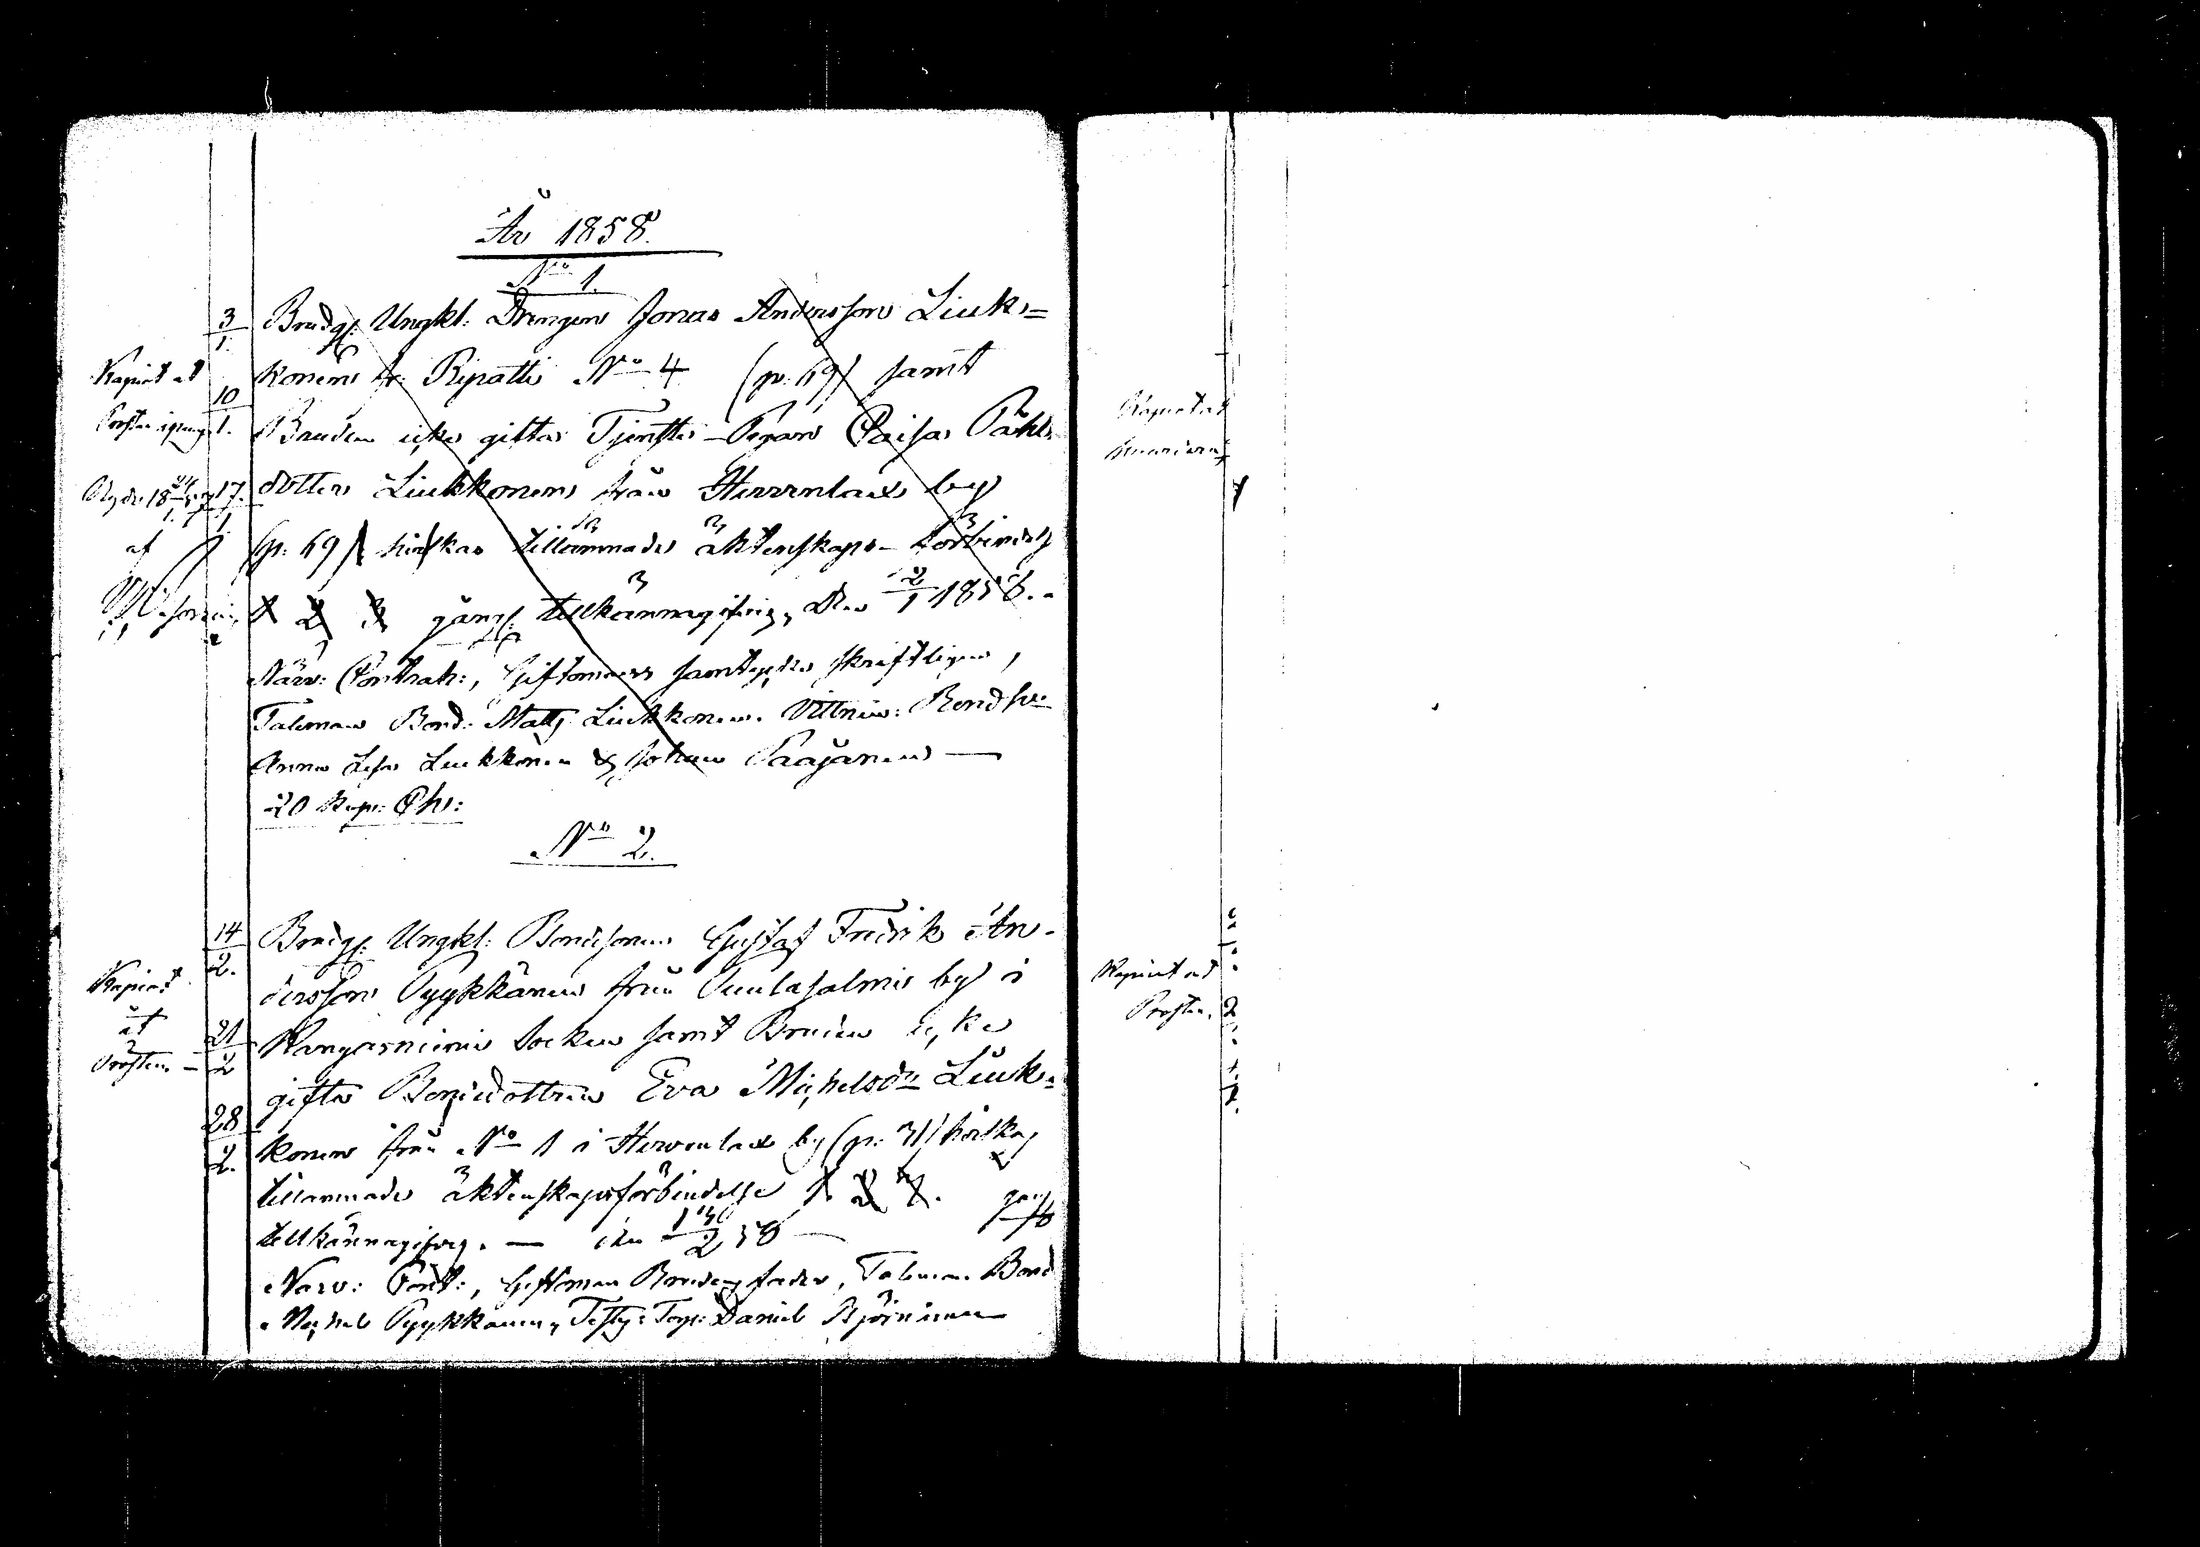 År 1858.
No 1.
3/1. Brudg: Ungkl: Drengen Jonas Andersson Liuk=
konen fr: Ripatti No 4 (p: 69) samt
10/1. Bruden icke gifta Tjenste-Pigan Caisa Påhls
dotter Liukkonen från Hirvenlax by
17/1. (p: 69) hvilkas tillämnade äktenskaps-förbindels
1 2 3 gång: tillkännagifvits, den 2/1 1858.
Närv: Contrah:, Giftomans samtycke skriftligen,
Taleman Bond: Matts Liukkonen. Vittnen: Bond hu
Anna Lisa Liukkonen & Johan Paajanen —
20 Kop: Chs:
Kopiat åt
Prosten
af
No 2.
14/2. Brudg: Ungkl: Bondesonen Gustaf Fredrik An-
dersson Pyykkänen från Puulasalmi by i
21/2 Kangasniemi Socken samt Bruden icke
gifta Bondedottren Eva Michelsdr Liuk=
28/2. konen från No 1 i Hirvenlax by (p: 31) hvilkas
tillämnade äktenskapsförbindelse 1 2 3. gång
tillkännagifvas. — den 13/2 58 —
Närv: Cont:, Giftoman Brudens fader, Taleman Bond
Michel Pyykkänen, Testis: Torp: Daniel Björninen
Kopiat
åt
Prosten. —
Kopiat åt
Kopiat åt
Prosten.